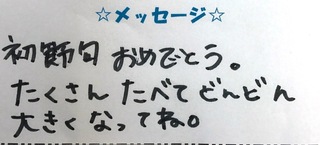 ☆メッセージ☆
初節句 おめでとう。
たくさん たべて どんどん
大きく なってね。